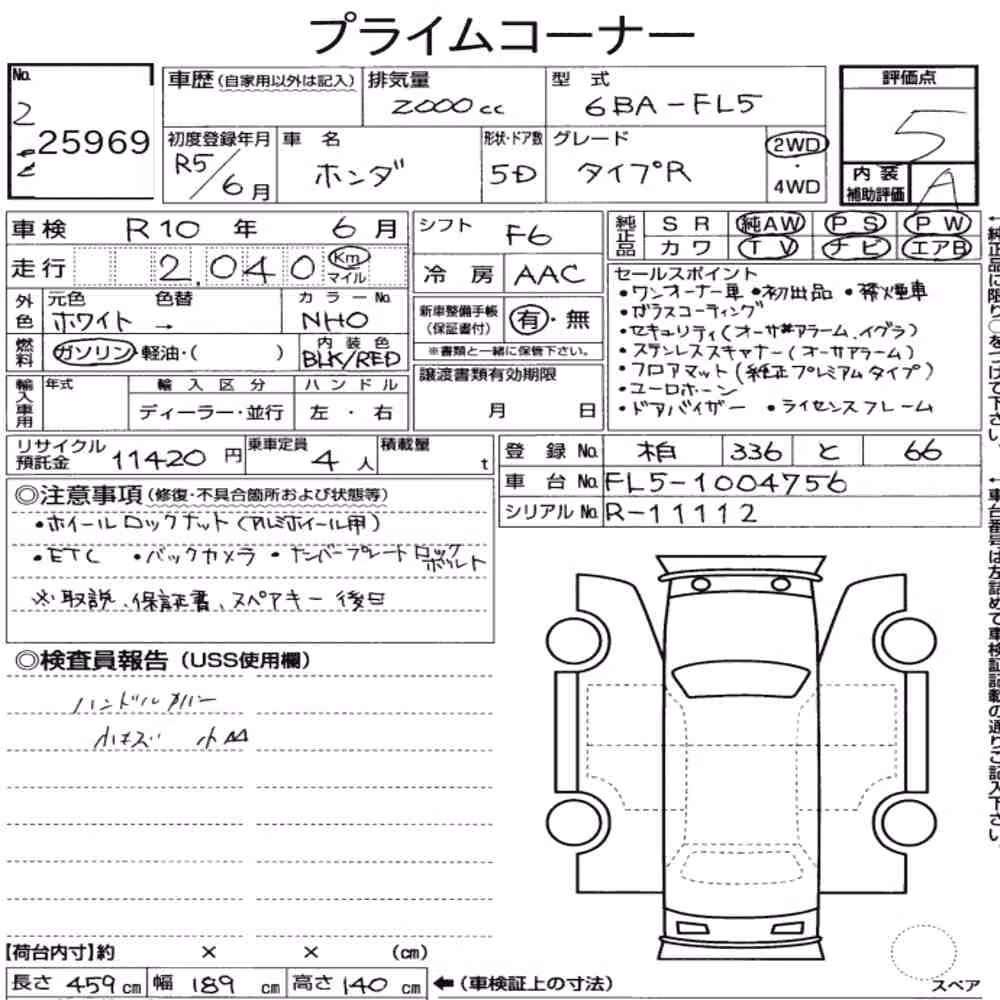 プライムコーナー
No. 25969
車歴(自家用以外は記入) 排気量 2000cc 型式 6BA-FL5
評価点 5
初度登録年月 R5/6月 車名 ホンダ 形状・ドア数 5D グレード タイプR 2WD・4WD
内装補助評価 A
車検 R10年 6月 シフト F6
純正品 SR 純AW PS PW
カワ TV ナビ エアB
走行 2,040 Km マイル
冷房 AAC
外色 元色 ホワイト 色替 → カラーNo. NHO
新車整備手帳(保証書付) 有・無
※書類と一緒に保管下さい。
燃料 ガソリン・軽油・( ) 内装色 BLK/RED
輸入車用 年式 輸入区分 ディーラー・並行 ハンドル 左・右
譲渡書類有効期限 月 日
セールスポイント
・ワンオーナー車 ・初出品 ・禁煙車
・ガラスコーティング
・セキュリティ(オーサ#アラーム、イグラ)
・ステンレススキャナー(オーサアラーム)
・フロアマット(純正プレミアムタイプ)
・ユーロホーン
・ドアバイザー ・ライセンスフレーム
←純正品に限り○をつけて下さい。
リサイクル預託金 11420円 乗車定員 4人 積載量 t
登録No. 柏 336 と 66
車台No. FL5-1004756
シリアルNo. R-11112
←車台番号は左詰めで車検証記載の通りご記入下さい。
◎注意事項(修復・不具合箇所および状態等)
・ホイールロックナット(アルミホイール用)
・ETC ・バックカメラ ・ナンバープレートロックボルト
※取説、保証書、スペアキー後日
◎検査員報告(USS使用欄)
ハンドルカバー
小キズ
【荷台内寸】約 × × (cm)
長さ 459cm 幅 189cm 高さ 140cm ←(車検証上の寸法)
スペア